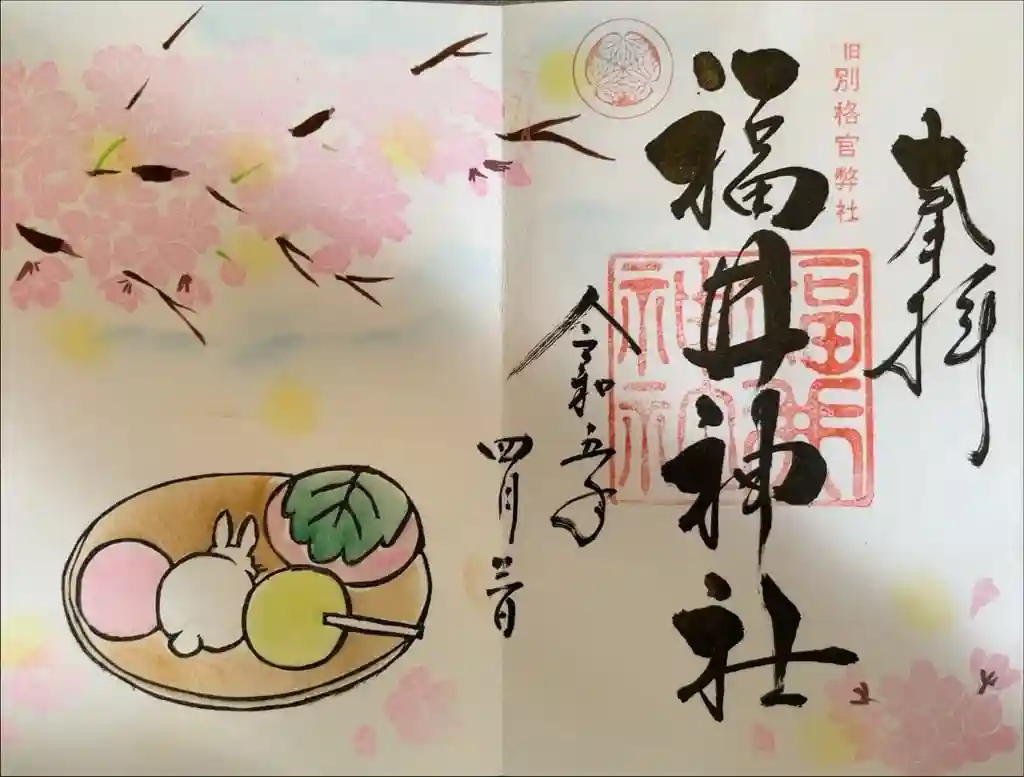 奉拝
旧別格官弊社
福井神社
福井神社
令和五年
四月二日